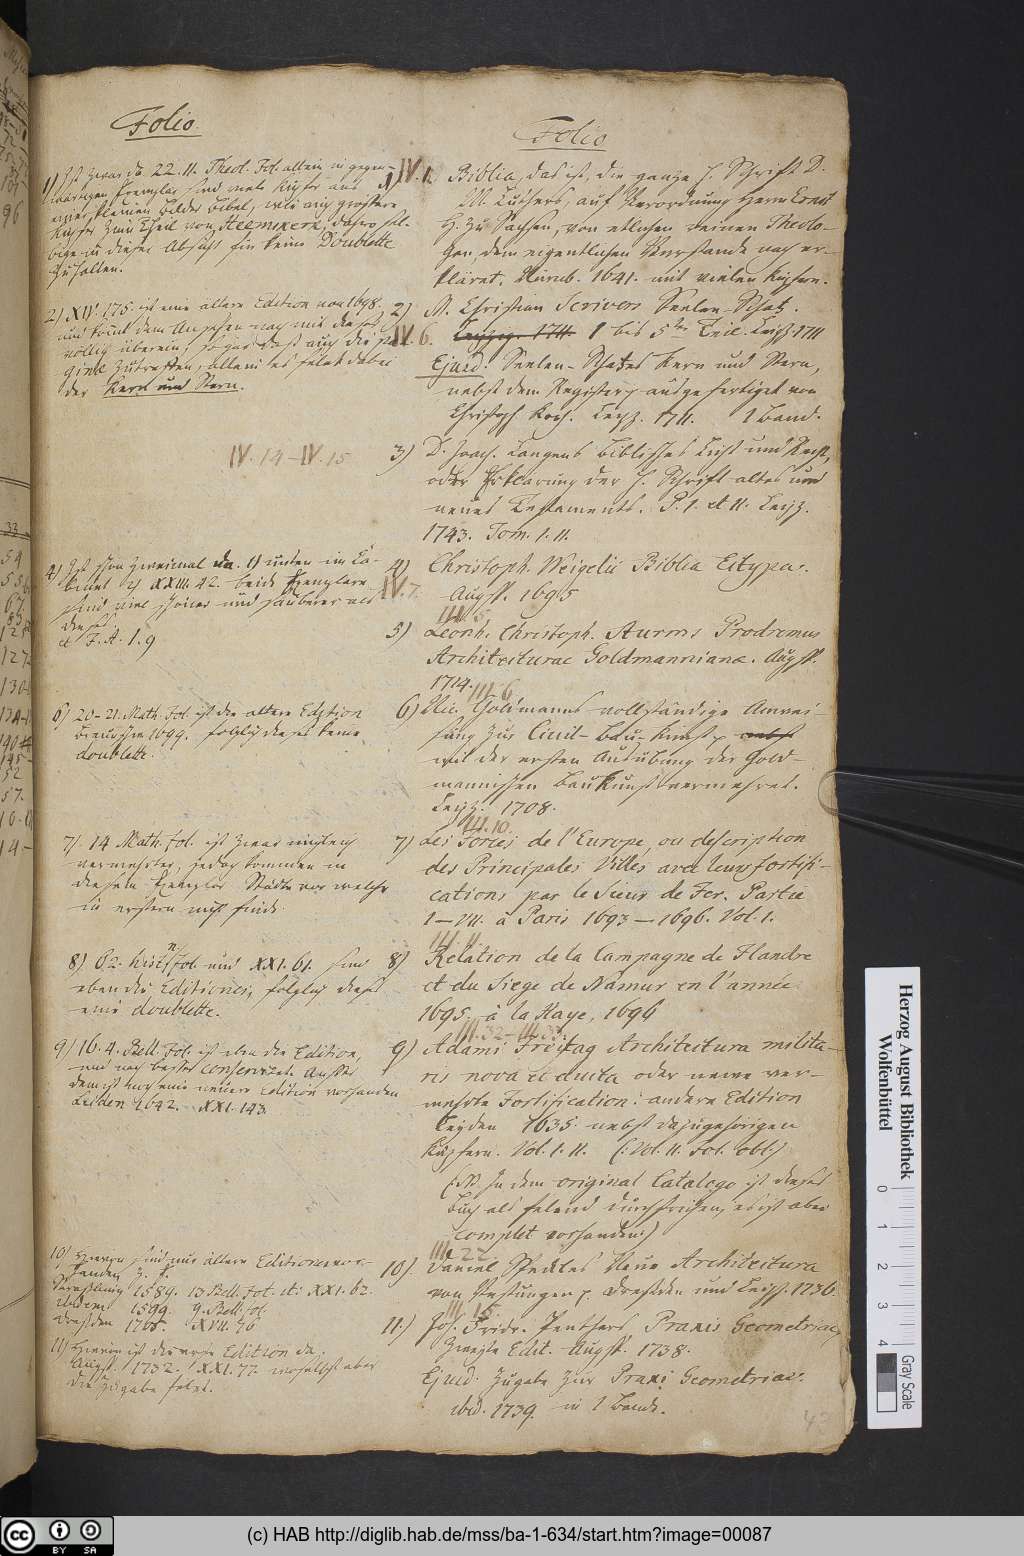 Folio
1) Ist zwar da 22. 11. Theol. Fol. allein in gegen-
wärtigen Exemplar sind viele Kupfer aus
einer kleinen Bilder Bibel, wie auch größere
Kupfer zum Theil von Heemskerk, dahero sel-
bige in dieser Absicht für keine Doublette
zu halten.
2) XIV. 175. ist eine ältere Edition von 1698.
und kömt dem Ansehen nach mit dieser
völlig überein, so gar daß auch die pa-
ginae zutreffen, allein es fehlet dabei
der Kern und Stern.
IV. 14 – IV. 15
4) Ist schon zweimal da. 1) unten im Ca-
binet 2) XXIII. 42. beide Exemplare
sind viel schöner und sauberer als
dieses
et F. A. 1. 9
6) 20-21. Math. Fol. ist die ältere Edition
Braunschw. 1699. folglich dieses keine
doublette.
7) 14 Math. fol. ist zwar ungleich
vermehrter, jedoch kommen in
diesem Exemplar Städte vor welche
in ersterm nicht sind.
8) 62. Hist. fol. und XXI. 61. sind
eben die Editiones, folglich dieses
eine doublette.
9) 16. 4. Bell. Fol. ist eben die Edition,
und noch besser conservirt. Außer
dem ist noch eine neuere Edition vorhanden
Leiden 1642. XXI. 143
10) Hievon sind nur ältere Editionen vor-
handen z. E.
Straßburg 1589. 13 Bell. Fol. it: XXI. 62.
1599. 9. Bell. fol.
Dresden 1705. XVII. 76
11) Hievon ist die erste Edition da.
Augsp. 1732. XXI. 77. woselbst aber
die Zugabe fehlt.
Folio
IV. 1.
1) Biblia, das ist, die ganze H. Schrifft D.
M. Luthers, auf Verordnung Herrn Ernst
H. zu Sachsen, von etlichen reinen Theolo-
gen, dem eigentlichen Verstande nach er-
kläret. Nürnb. 1641. mit vielen Kupfern.
2) M. Christian Scrivers Seelen-Schatz.
IV. 6.
Leipzig. 1711. 1 bis 5ter Theil. Leipz. 1711
Ejusd: Seelen-Schatzes Kern und Stern,
nebst dem Register, ausgefertiget von
Christoph Koch. Leipz. 1711. 1 Band.
3) D. Joach. Langens Biblisches Licht und Recht,
oder Erklärung der H. Schrifft altes und
neues Testaments. P. 1. et 11. Leipz.
1743. Tom. 1. 11.
4) Christoph. Weigelii Biblia Ectypa.
IV. 7.
Augsp. 1695
III. 5.
5) Leonh. Christoph. Sturms Prodromus
Architecturae Goldmannianae. Augsp.
1714.
III. 6
6) Nic. Goldmanns vollständige Anwei-
sung zur Civil-Bau-Kunst, nebst
mit der ersten Ausübung der Gold-
mannischen Baukunst vermehret.
Leipz. 1708.
III. 10.
7) Les Forces de l'Europe, ou description
des Principales Villes avec leurs fortifi-
cations par le Sieur de Fer. Partie
1–VII. à Paris 1693–1696. Vol. 1.
III. 11
8) Relation de la Campagne de Flandre
et du Siege de Namur en l'année
1695. à la Haye, 1696
III. 32 – III. 33.
9) Adami Freitag Architectura milita-
ris nova et aucta oder neue ver-
mehrte Fortification: andere Edition
Leyden 1635. nebst dazugehörigen
Kupfern. Vol. 1. 11. (: Vol. 11. Fol. obl:)
(NB. In dem original Catalogo ist dieses
Buch als fehlend durchstrichen, es ist aber
complet vorhanden)
III. 22
10) Daniel Speckles Neue Architectura
von Vestungen p. Dresden und Leipz. 1736
III. 15
11.) Joh. Fridr. Penthers Praxis Geometriae,
Zweyte Edit. Augsp. 1738.
Ejusd. Zugabe zur Praxi Geometriae.
ibid. 1739. in 1 Bande.
43
Herzog August Bibliothek
Wolfenbüttel
0 1 2 3 4
Gray Scale
(c) HAB http://diglib.hab.de/mss/ba-1-634/start.htm?image=00087
cc BY SA